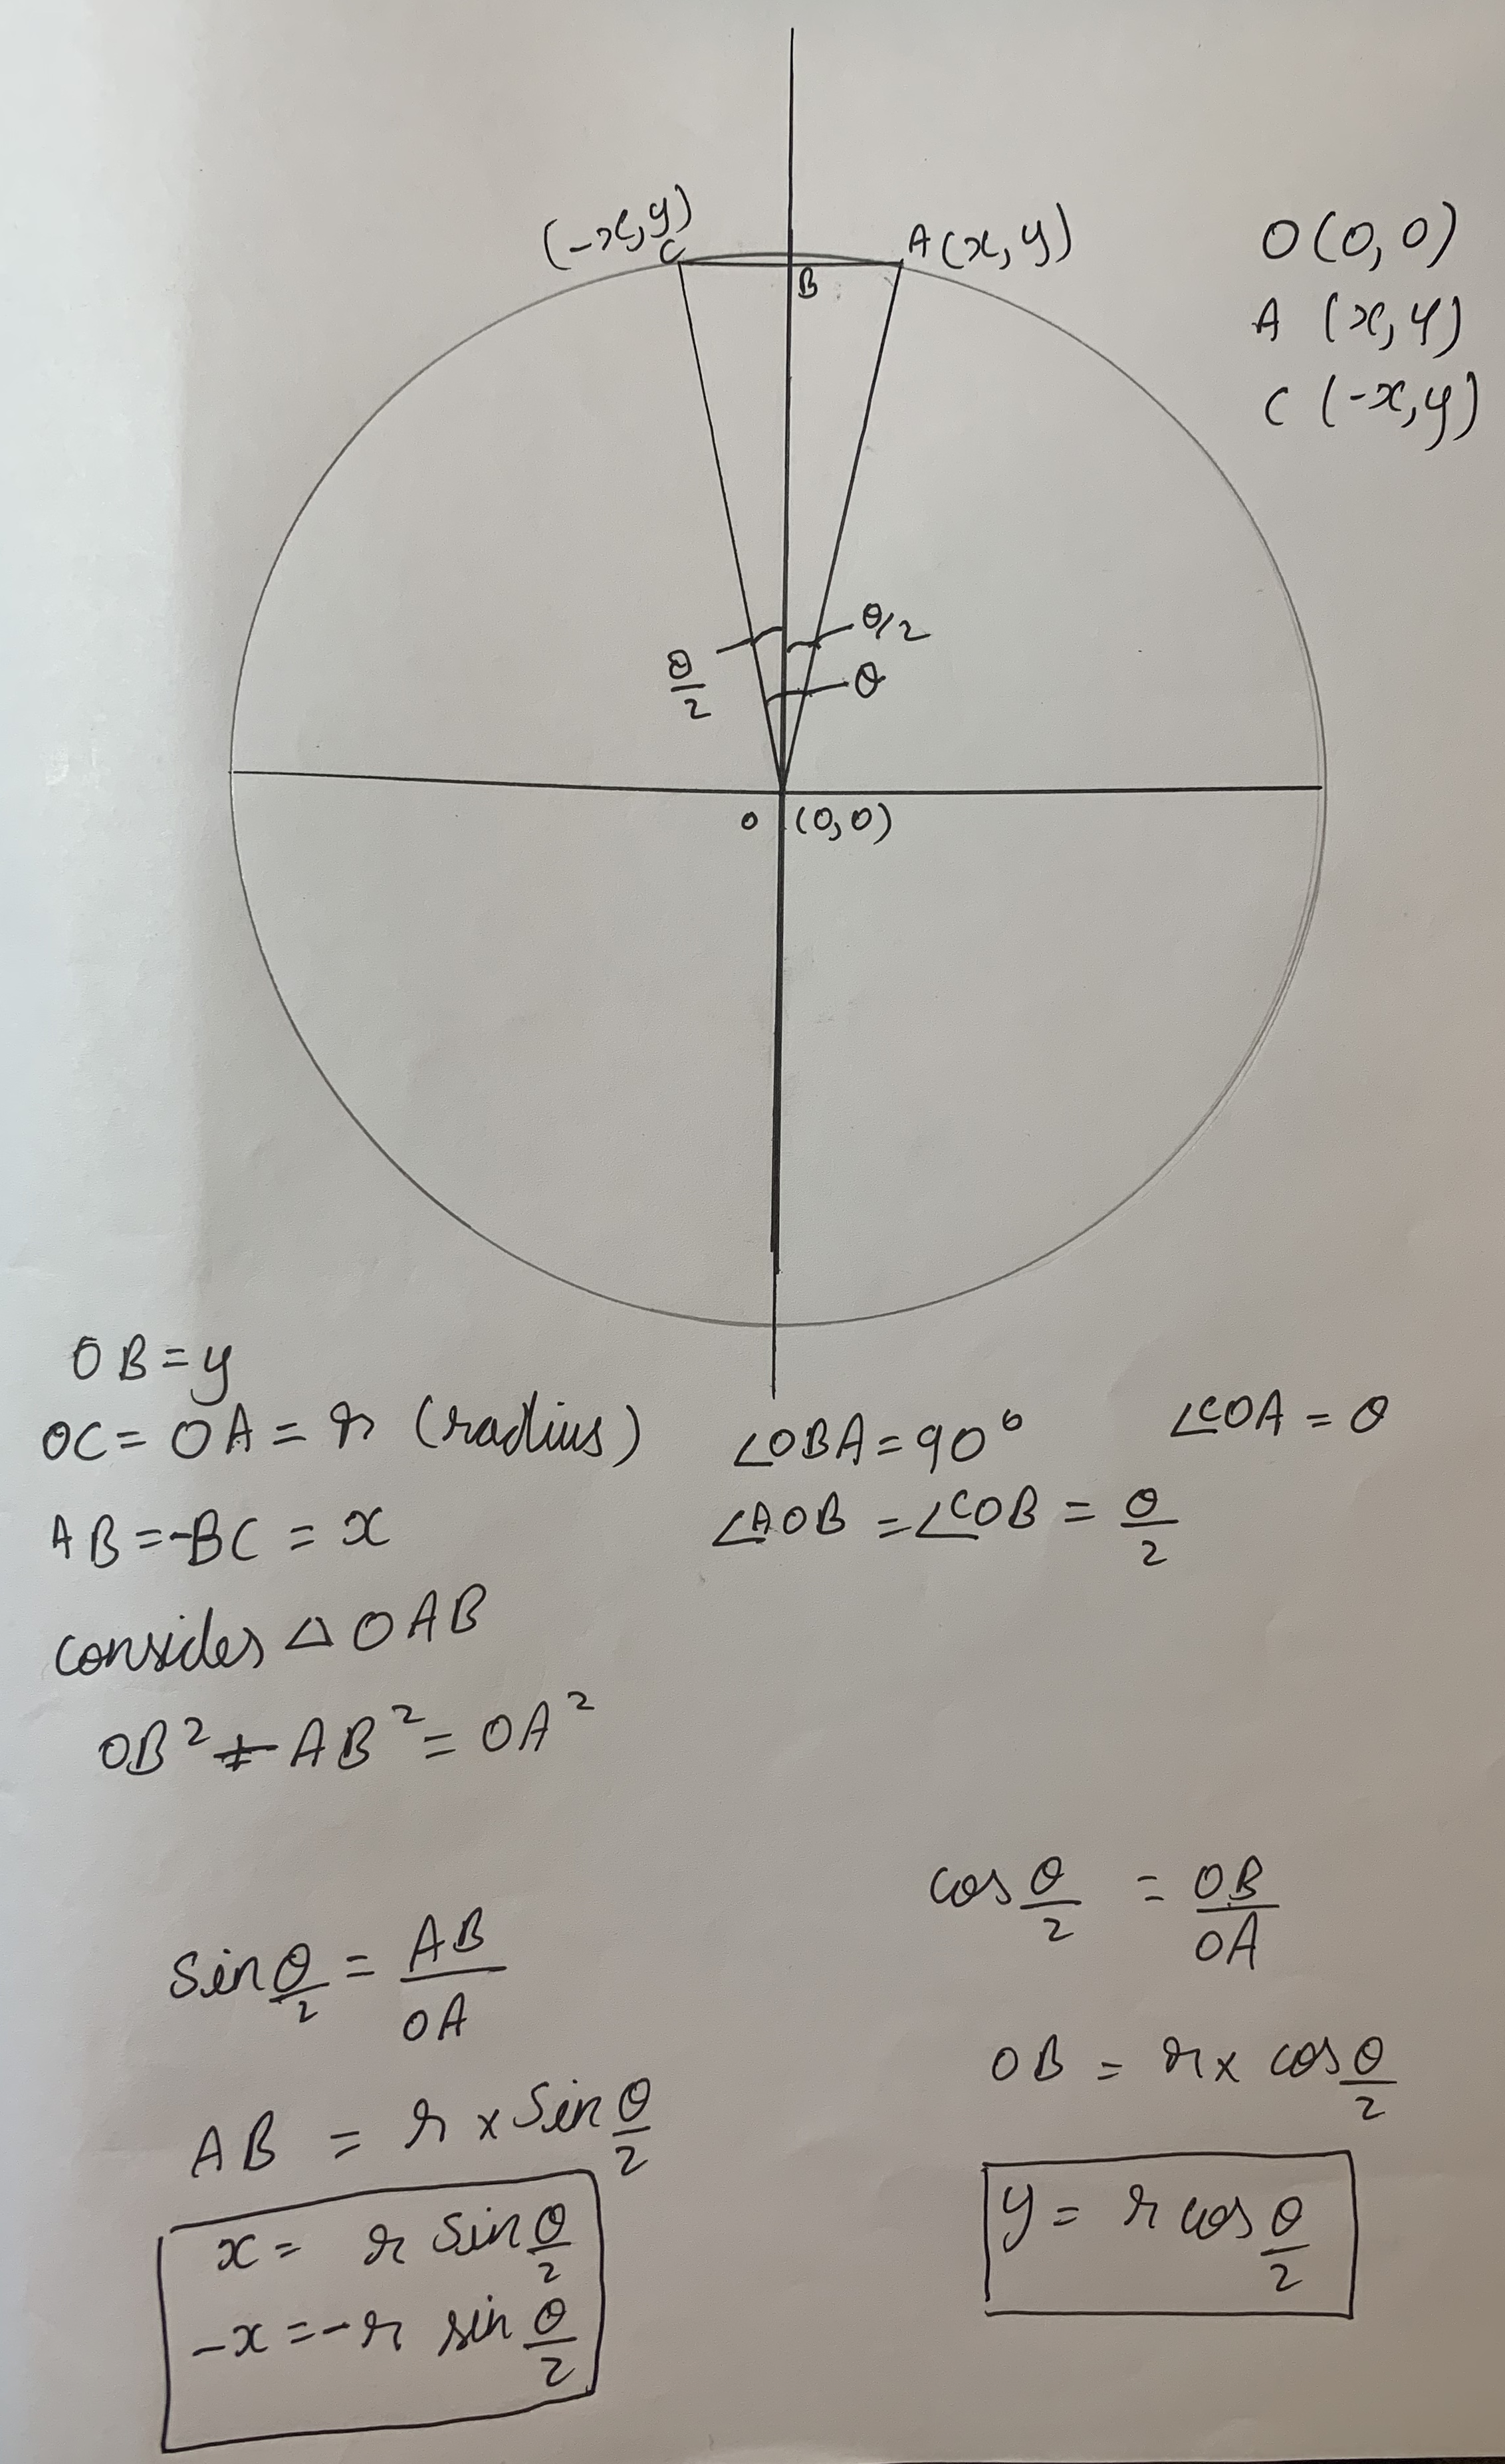 (-x,y)
C
A(x,y)
B
O(0,0)
A (x,y)
C (-x,y)
θ/2
θ/2
θ
O (0,0)
OB=y
OC=OA=r (radius)
∠OBA=90°
∠COA=θ
AB=-BC=x
∠AOB=∠COB=θ/2
consider △OAB
OB²+AB²=OA²
cos θ/2 = OB/OA
sin θ/2 = AB/OA
OB = r x cos θ/2
AB = r x sin θ/2
y = r cos θ/2
x = r sin θ/2
-x =-r sin θ/2